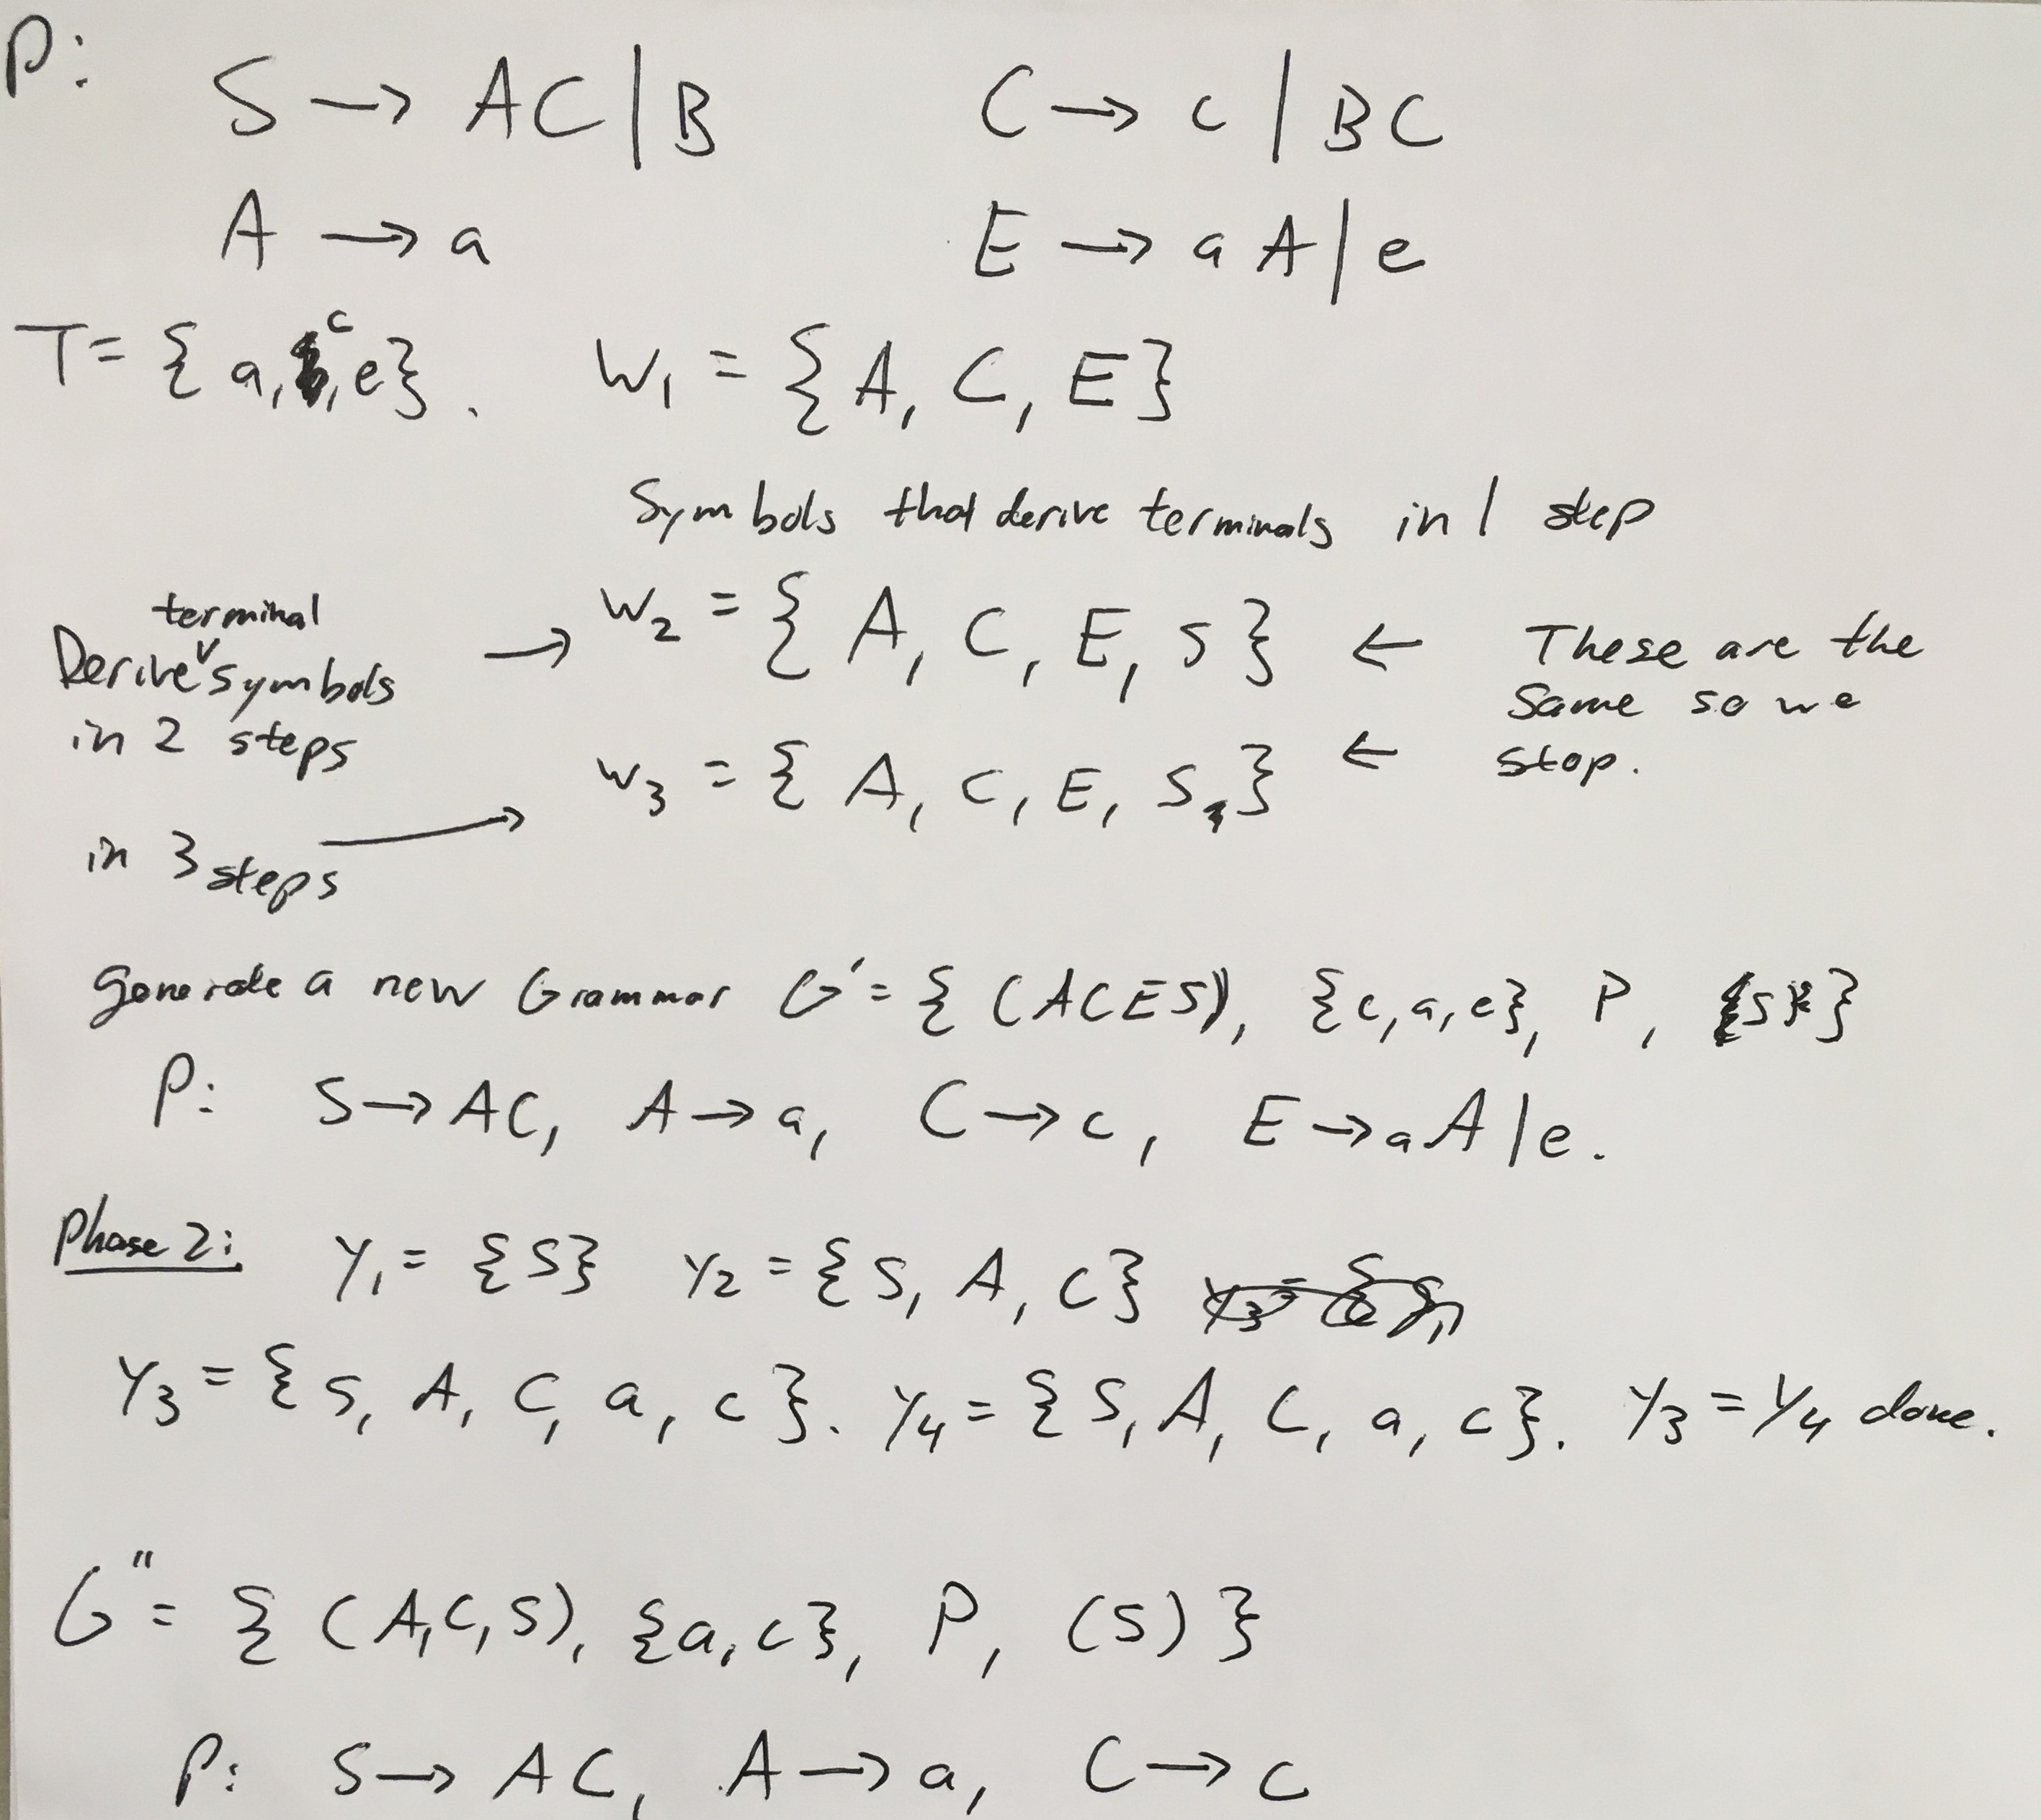 P:
S → AC | B    C → c | BC
A → a    E → aA | e
T = { a, c, e }.    W₁ = { A, C, E }
Symbols that derive terminals in 1 step
Derive terminal symbols in 2 steps → W₂ = { A, C, E, S } ← These are the same so we stop.
in 3 steps → W₃ = { A, C, E, S } ←
generate a new Grammar G' = { (ACES), {c, a, e}, P, S }
P: S → AC, A → a, C → c, E → aA | e.
Phase 2: Y₁ = {S} Y₂ = {S, A, C}
Y₃ = { S, A, C, a, c }. Y₄ = { S, A, C, a, c }. Y₃ = Y₄ done.
G" = { (A, C, S), {a, c}, P, (S) }
P: S → AC, A → a, C → c